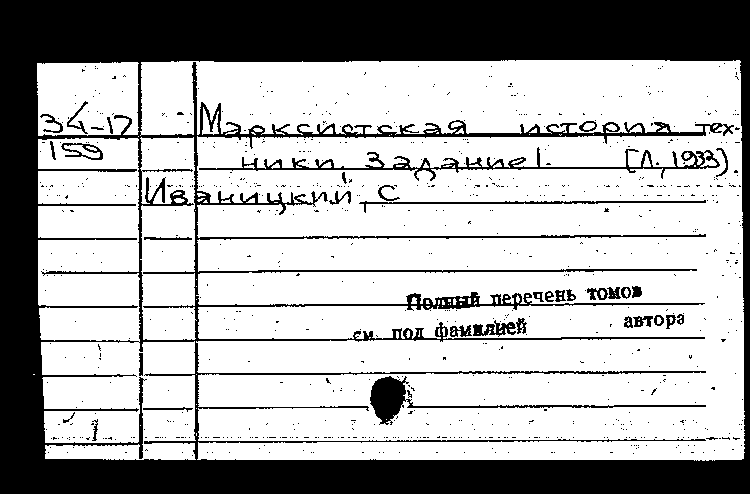 34-17 Марксистская история тех-
159 ники. Задание 1. [Л., 1933].
Иваницкий, С
Полный перечень томов
см. под фамилией автора
1